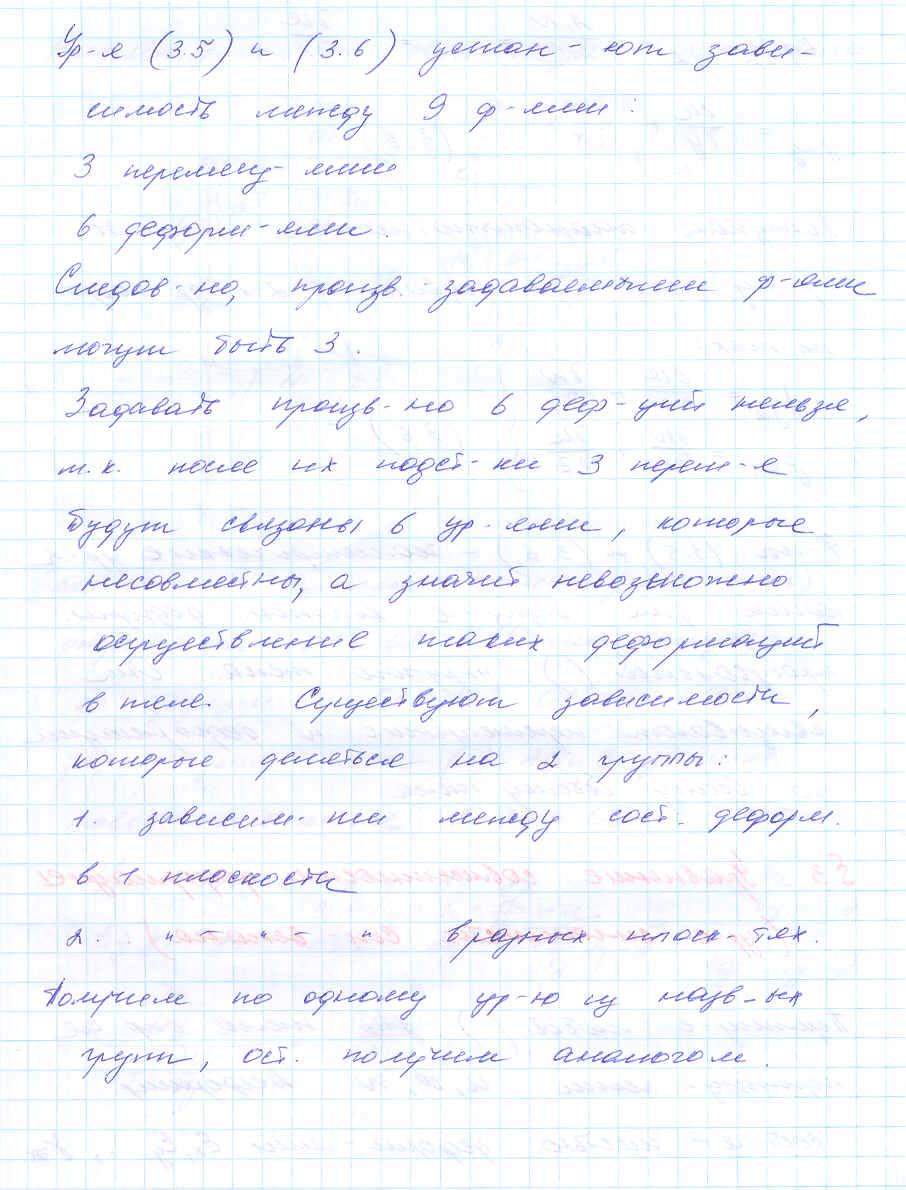 Ур-я (3.5) и (3.6) устан-ют зави-
симость между 9 ф-ями:
3 перемещ-ями
6 деформ-ями.
Следов-но, произв. задаваемыми ф-ями
могут быть 3.
Задавать произв-но 6 деф-ций нельзя,
т.к. после их подст-ки 3 перем-я
будут связаны 6 ур-ями, которые
несовместны, а значит невозможно
осуществление таких деформаций
в теле. Существуют зависимости,
которые деляться на 2 группы:
1. зависим-ти между сост. деформ.
в 1 плоскости
2. " - " - " в разных плоск-тях.
Получим по одному ур-ю из назв-ых
групп, ост. получим аналогом.